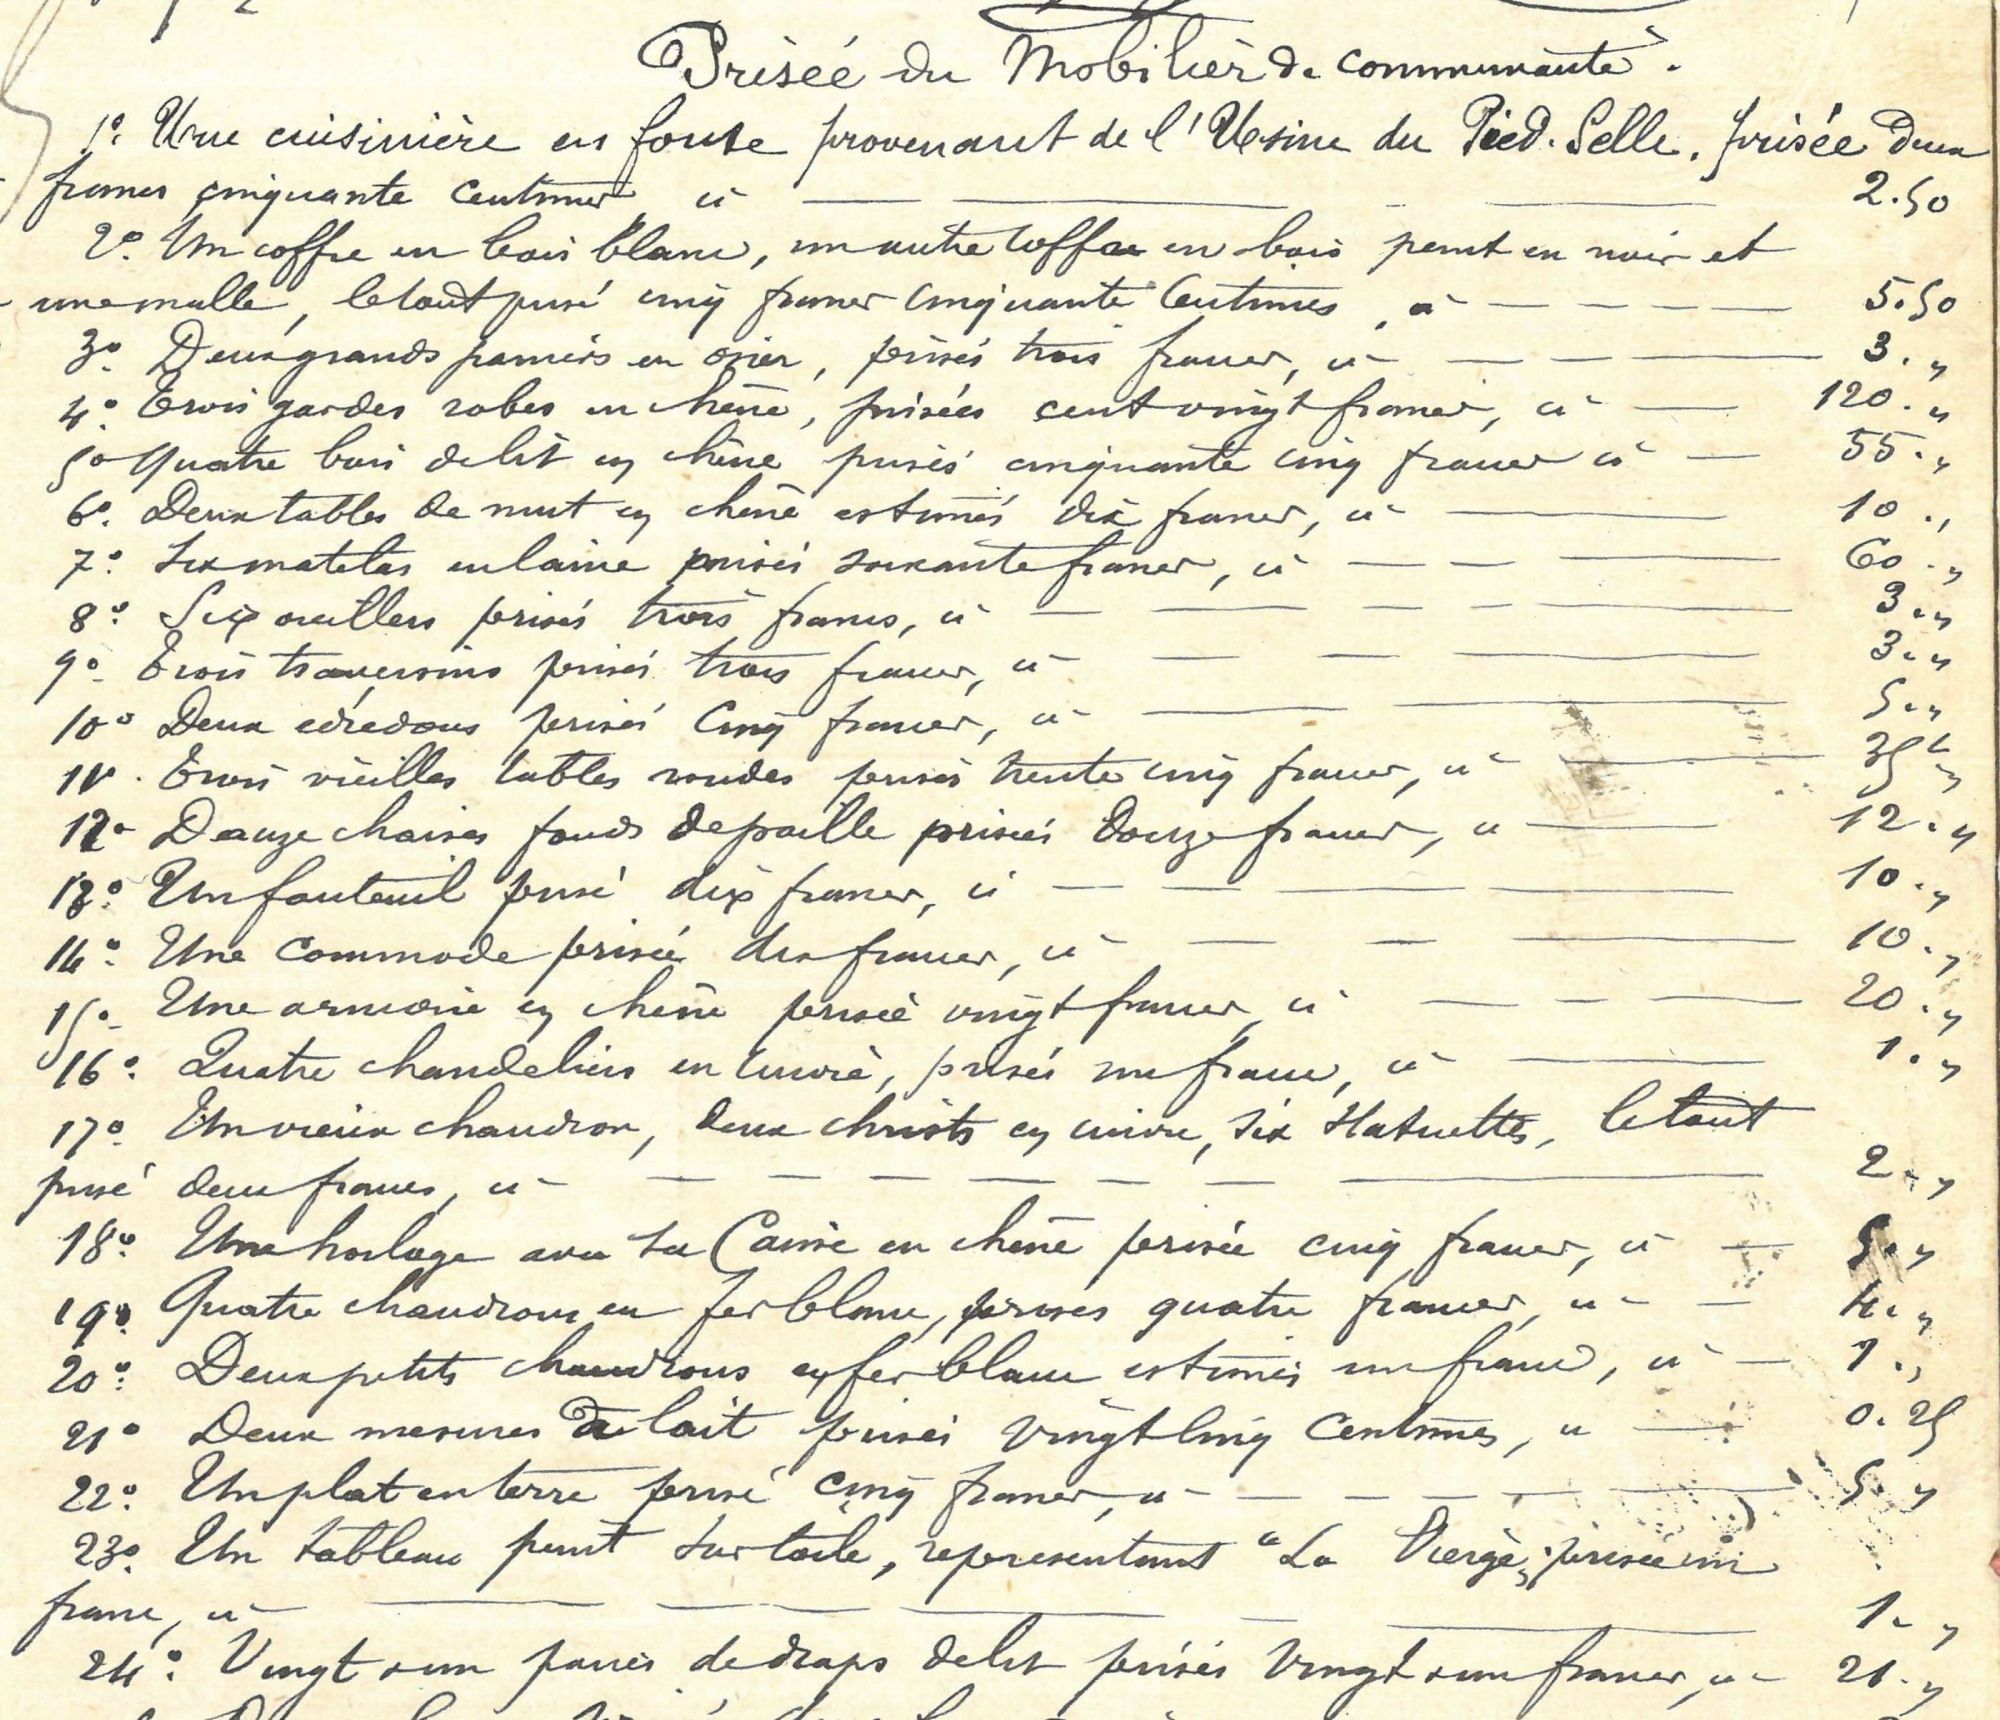 Prisée du Mobilier de communauté.
1º. Une cuisinière en fonte provenant de l'Usine du Pied-Selle, prisée deux
francs cinquante centimes ci — — — — 2.50
2º. Un coffre en bois blanc, un autre coffre en bois peint en noir et
une malle, le tout prisé cinq francs cinquante centimes, ci — — — — 5.50
3º. Deux grands paniers en osier, prisés trois francs, ci — — — 3. "
4º. Trois gardes robes en chêne, prisées cent vingt francs, ci — 120. "
5º Quatre bois de lit en chêne prisés cinquante cinq francs ci — 55. "
6º. Deux tables de nuit en chêne estimés dix francs, ci — 10. "
7º. Six matelas en laine prisés soixante francs, ci — — — 60. "
8º. Six oreillers prisés trois francs, ci — — — — — 3. "
9º. Trois traversins prisés trois francs, ci — — — 3. "
10º Deux edredons prisés cinq francs, ci — — 5. "
11º. Trois vieilles tables rondes prisés trente cinq francs, ci — 35 "
12º Douze chaises fonds de paille prisées douze francs, ci — 12. "
13º. Un fauteuil prisé dix francs, ci — — — — 10. "
14º. Une commode prisée dix francs, ci — — — 10. "
15º. Une armoire en chêne prisée vingt francs, ci — — — 20. "
16º. Quatre chandeliers en cuivre, prisés un franc, ci — 1. "
17º. Un vieux chaudron, deux christs en cuivre, six statuettes, le tout
prisé deux francs, ci — — — — — — — 2. "
18º. Une horloge avec sa Caisse en chêne prisée cinq francs, ci — 5. "
19º. Quatre chaudrons en fer blanc, prisés quatre francs, ci — 4. "
20º. Deux petits chaudrons en fer blanc estimés un franc, ci — 1. "
21º Deux mesures à lait prisés vingt cinq centimes, ci — 0.25
22º. Un plat en terre prisé cinq francs, ci — — — — — 5. "
23º. Un tableau peint sur toile, representant "La Vierge" prisée un
franc, ci — — — — — 1. "
24º. Vingt & un paires de draps de lit prisés Vingt & un francs, ci — 21. "